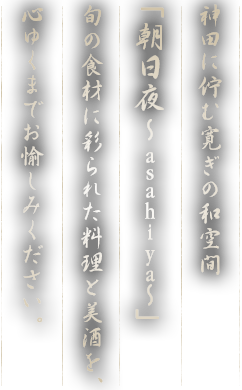 神田に佇む寛ぎの和空間
「朝日夜～asahiya～」
旬の食材に彩られた料理と美酒を、
心ゆくまでお愉しみください。